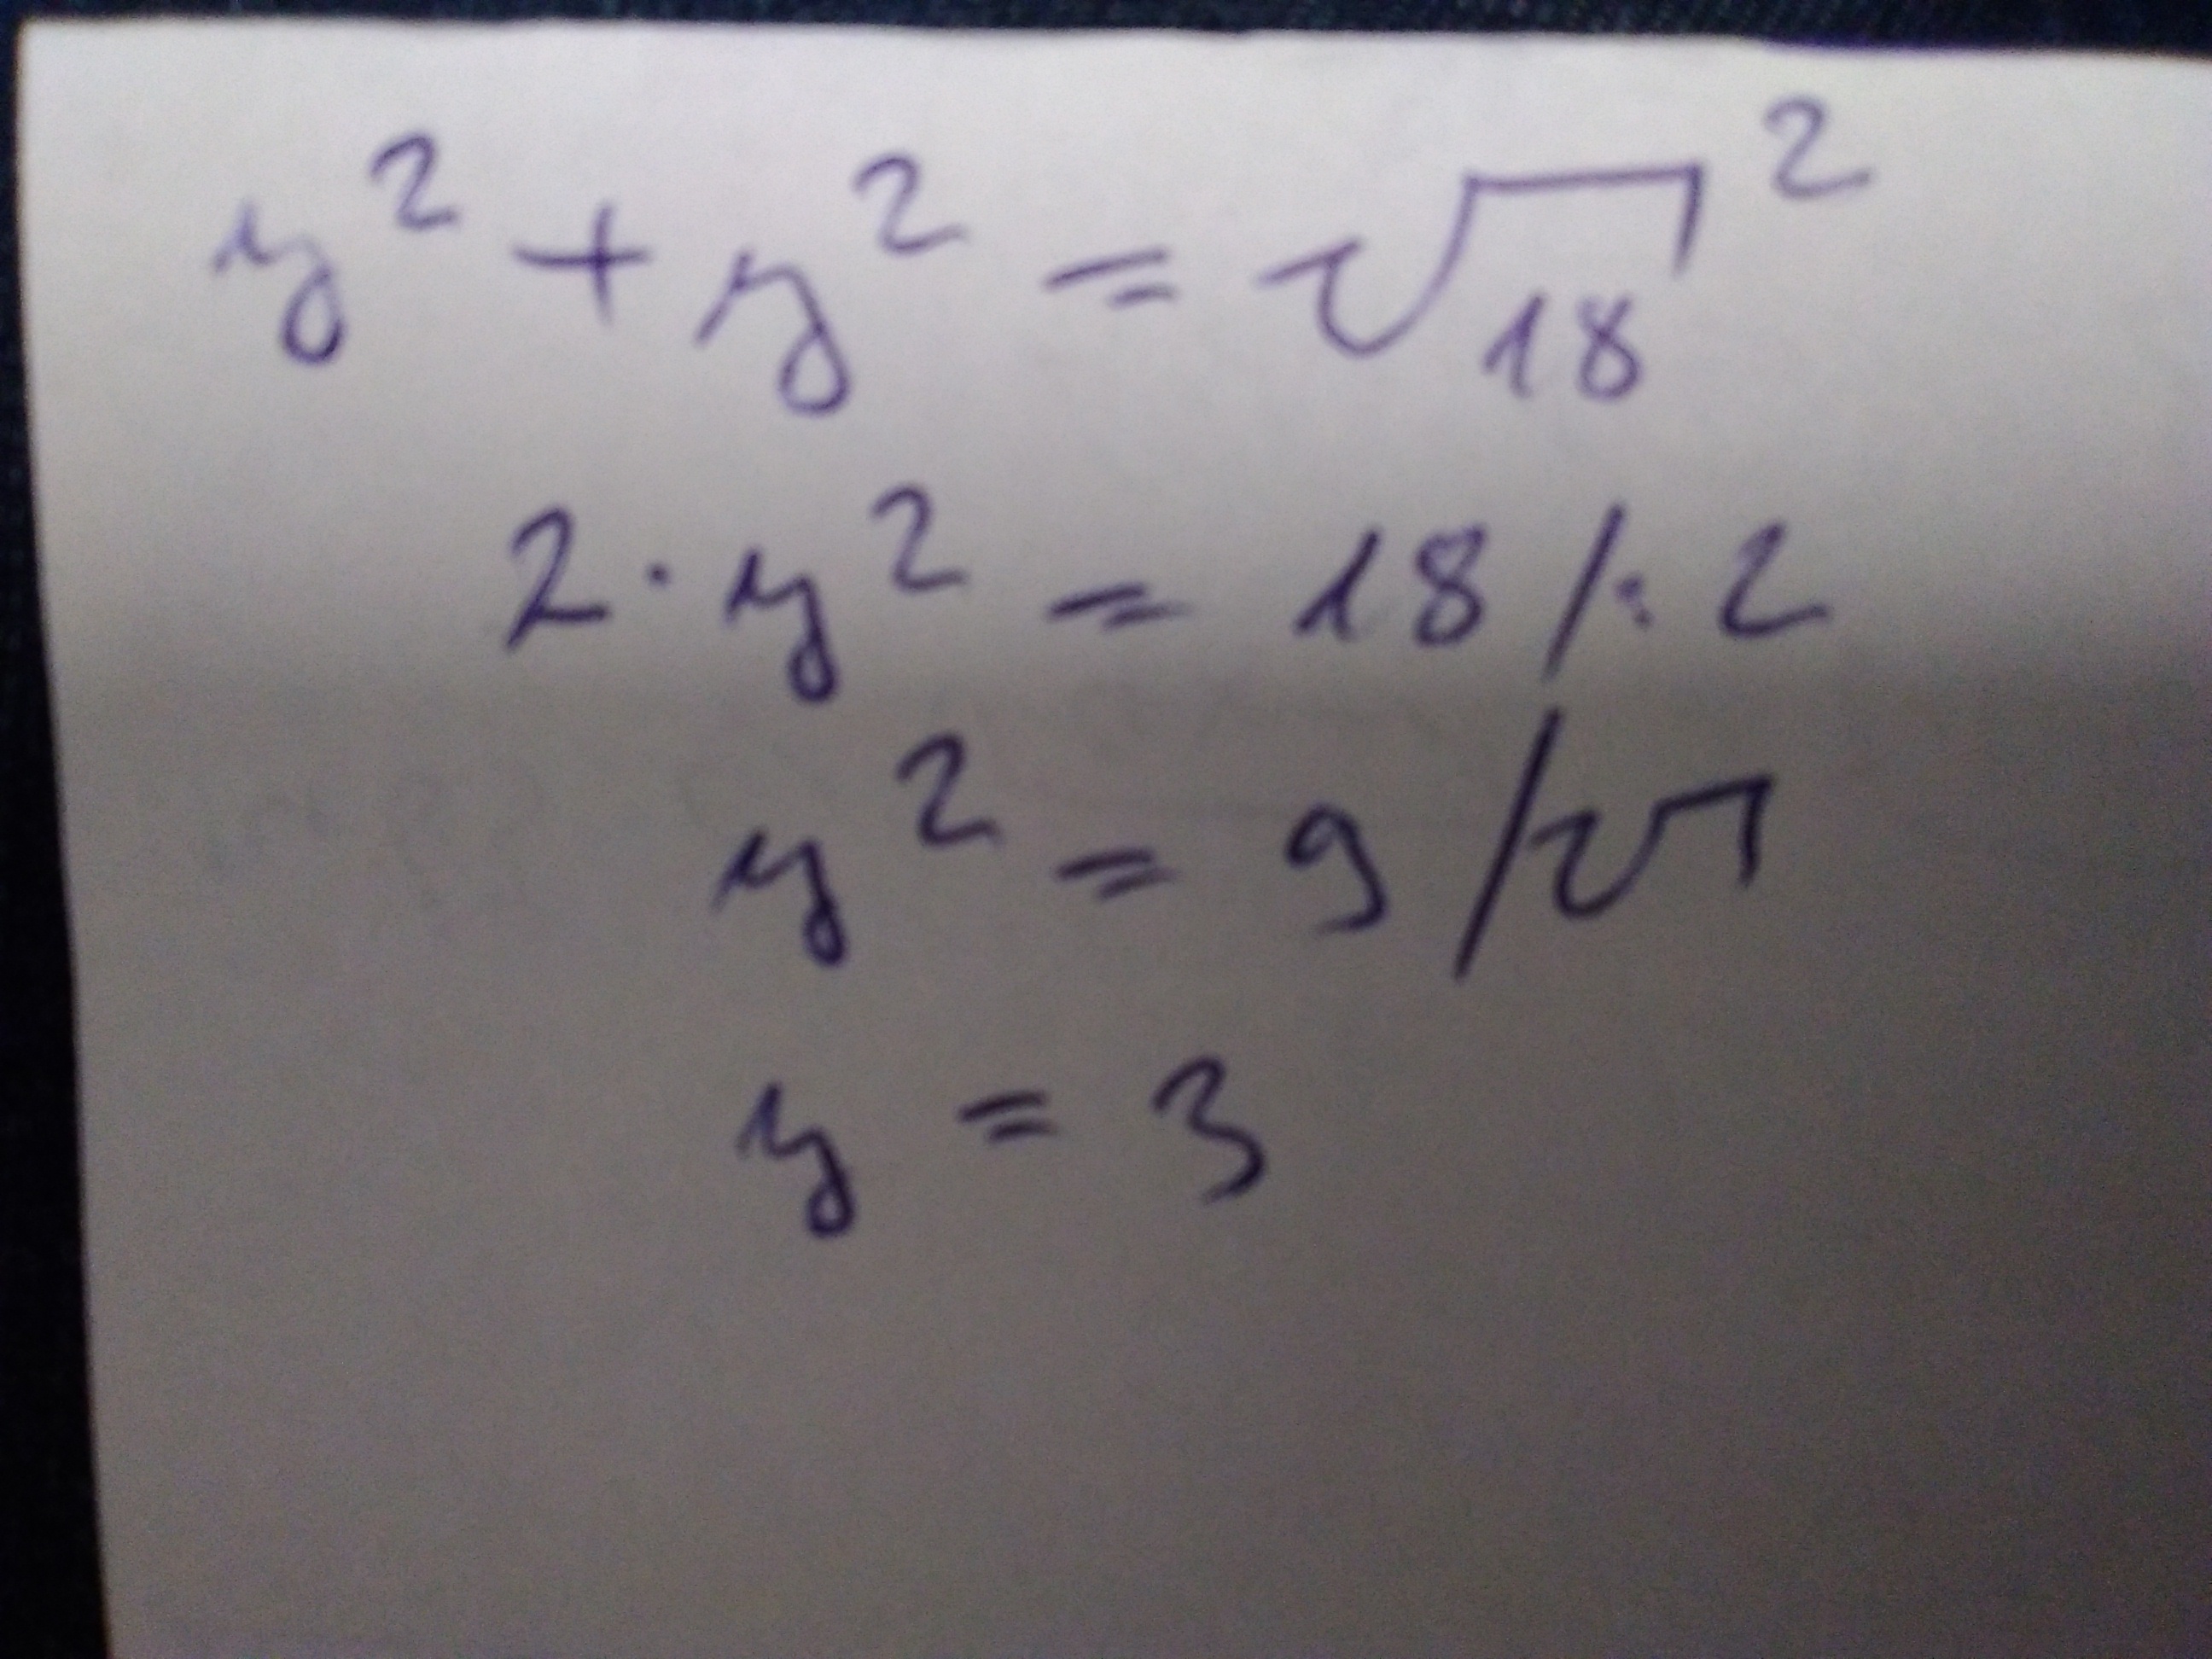 y² + y² = √18²
2 · y² = 18 / : 2
y² = 9 / √
y = 3